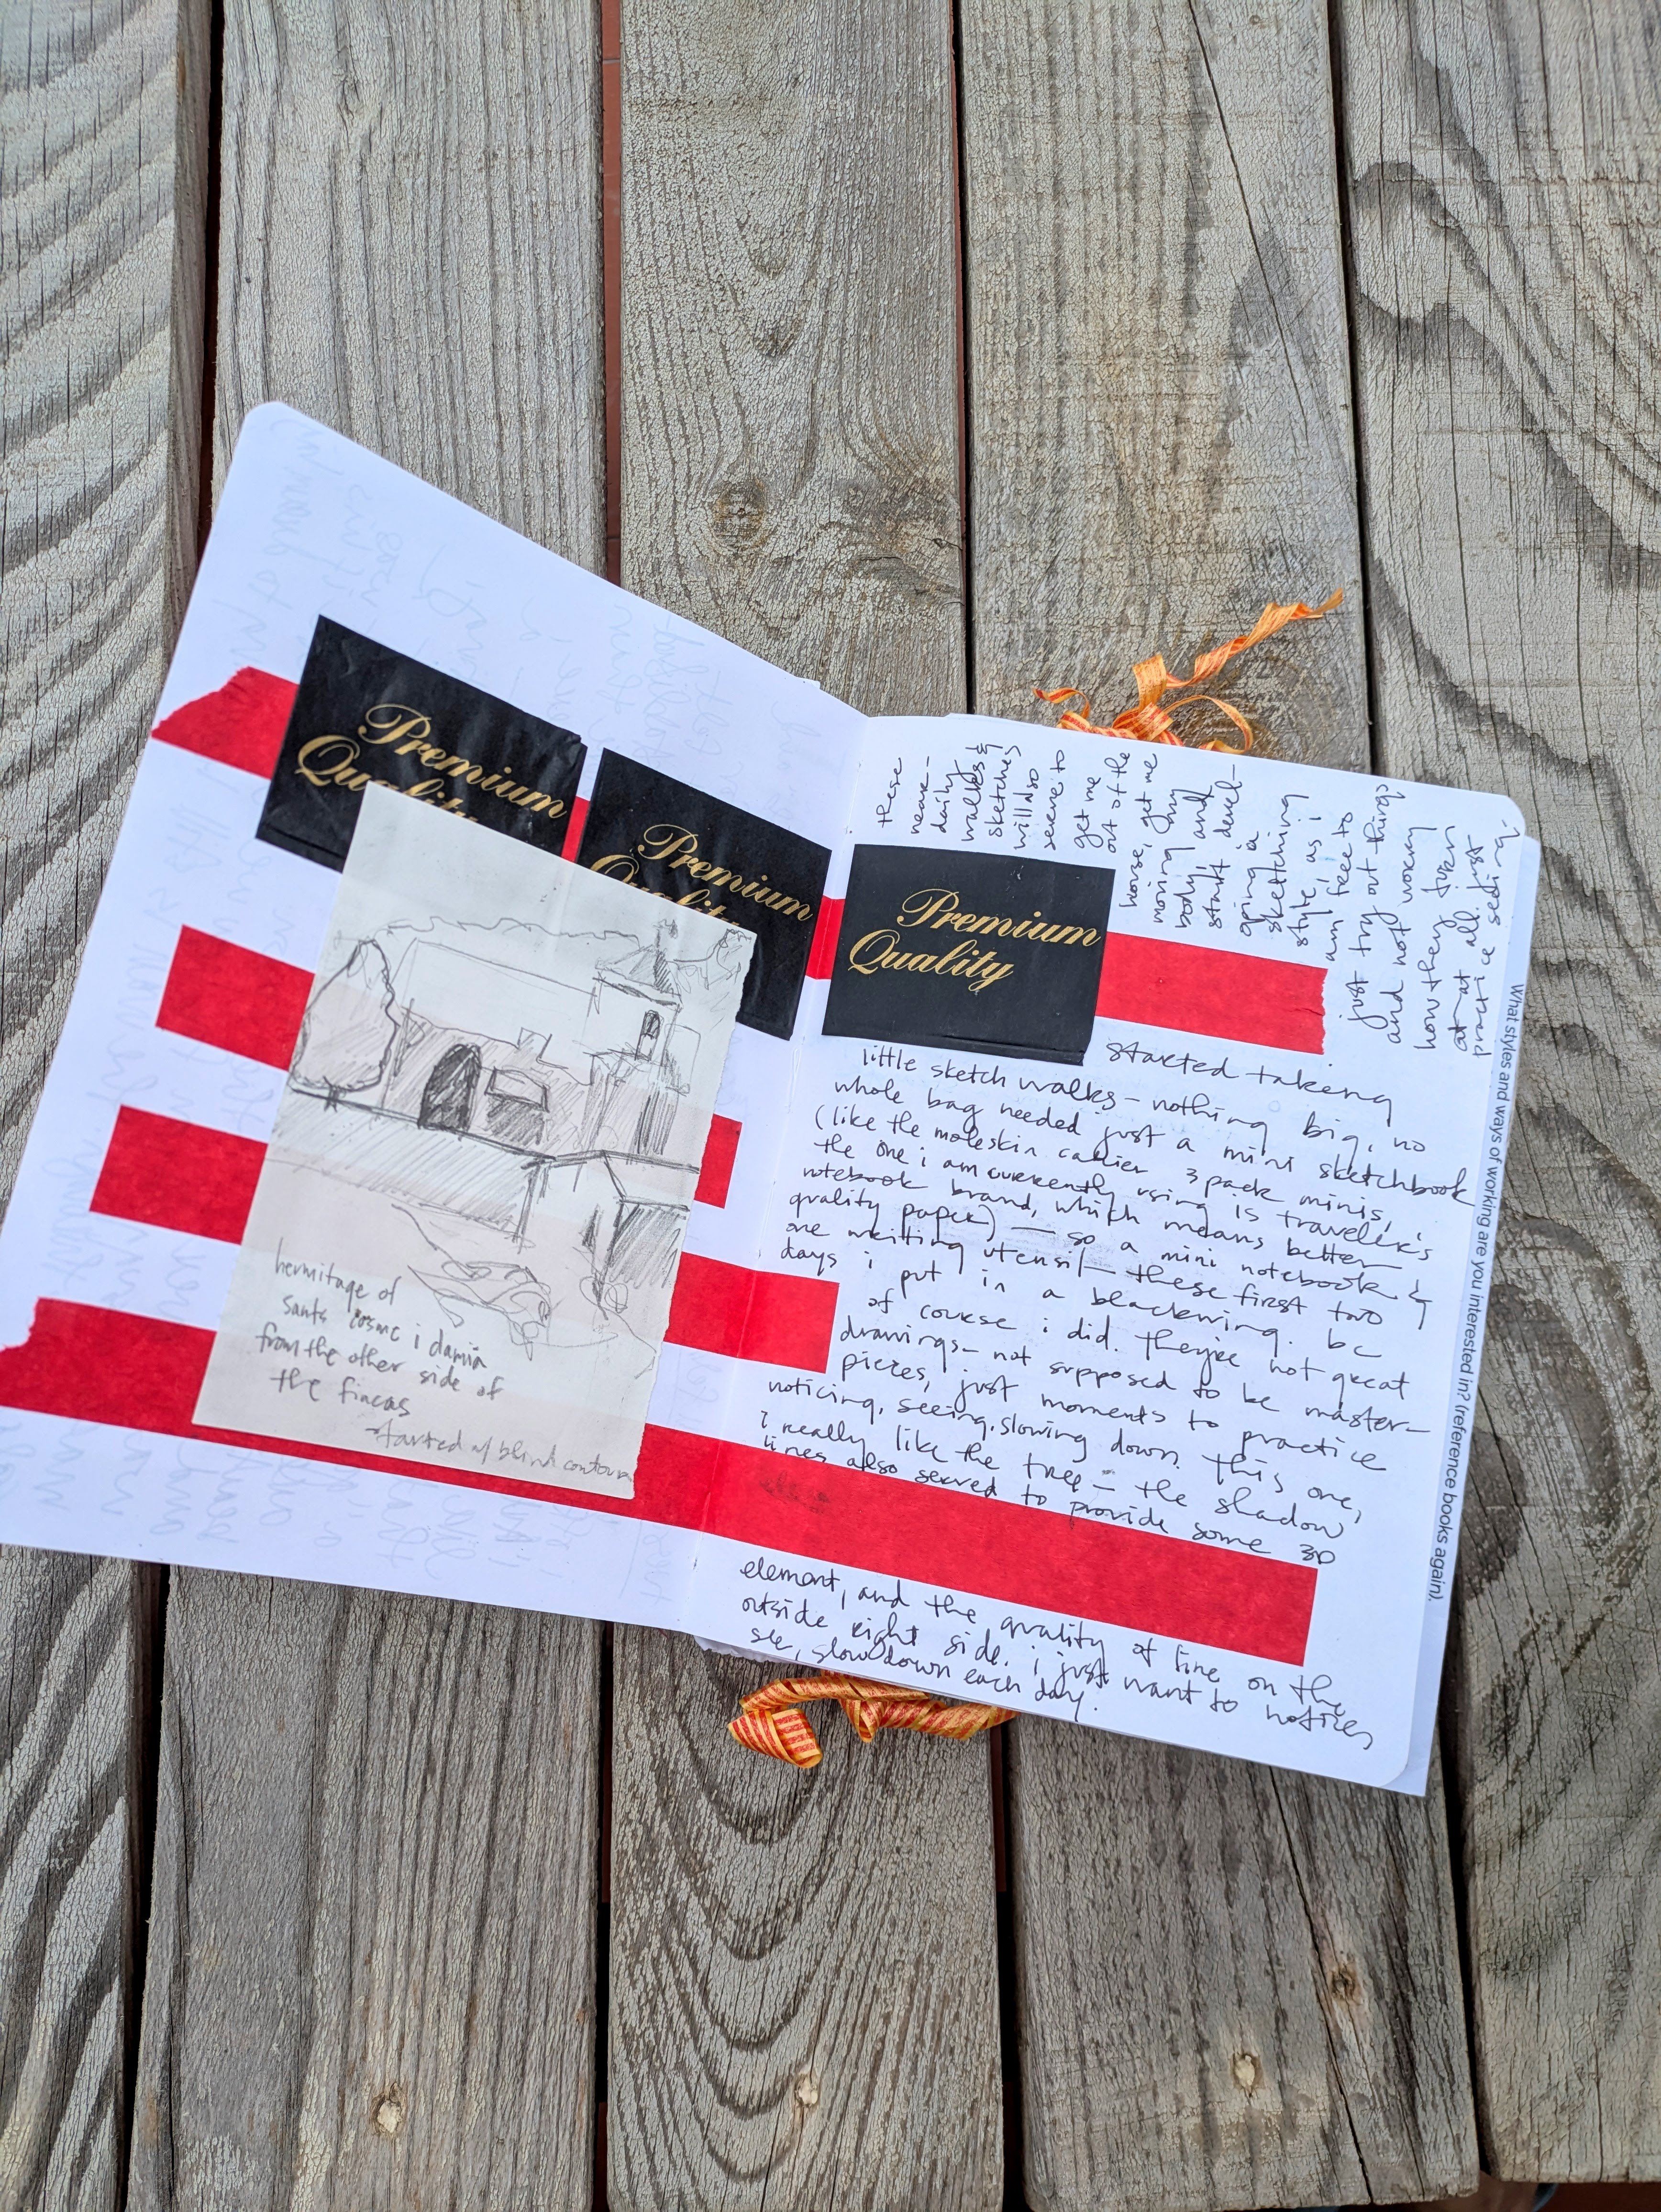 Premium
Quality
Premium
Quality
hermitage of
sants cosme i damià
from the other side of
the fincas
started w/ blind contour
these
near-
daily
walks &
sketches
will also
serve to
get me
out of the
house, get me
moving my
body, and
start devel-
oping a
sketching
style, as i
am free to
just try out things
and not worry
how they turn
out at all. just
practice seeing.
Premium
Quality
started taking
little sketch walks – nothing big, no
whole bag needed just a mini sketchbook
(like the moleskin cahier 3 pack minis,
the one i am currently using is traveler's
notebook brand, which means better
quality paper) – so a mini notebook &
one writing utensil – these first two
days i put in a blackwing. bc
of course i did. they're not great
drawings – not supposed to be master-
pieces, just moments to practice
noticing, seeing, slowing down. this one,
i really like the tree – the shadow
lines also served to provide some 3D
element, and the quality of line on the
outside right side. i just want to notice,
see, slow down each day.
What styles and ways of working are you interested in? (reference books again).